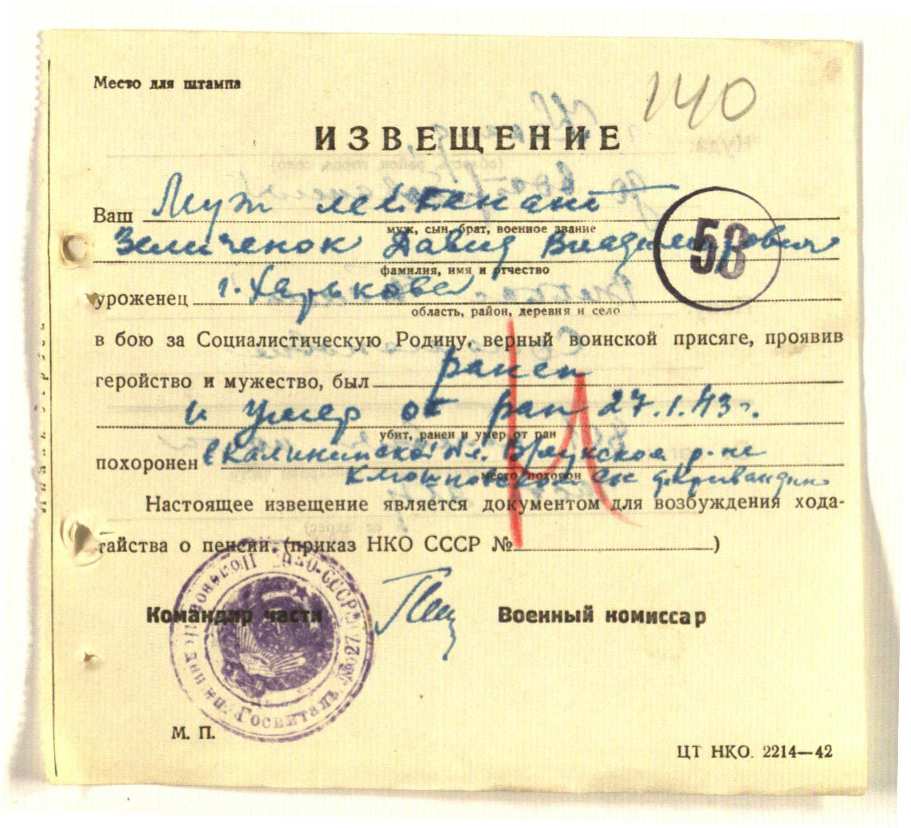 Место для штампа
140
ИЗВЕЩЕНИЕ
Ваш Муж лейтенант
муж, сын, брат, военное звание
Зеличенок Давид Владимирович
58
фамилия, имя и отчество
уроженец г. Харькова
область, район, деревня и село
в бою за Социалистическую Родину, верный воинской присяге, проявив
геройство и мужество, был ранен
и умер от ран 27.1.43г.
убит, ранен и умер от ран
похоронен в Калининской обл.
место похорон
Настоящее извещение является документом для возбуждения хода-
тайства о пенсии. (приказ НКО СССР № )
Командир части Военный комиссар
М. П.
ЦТ НКО. 2214—42